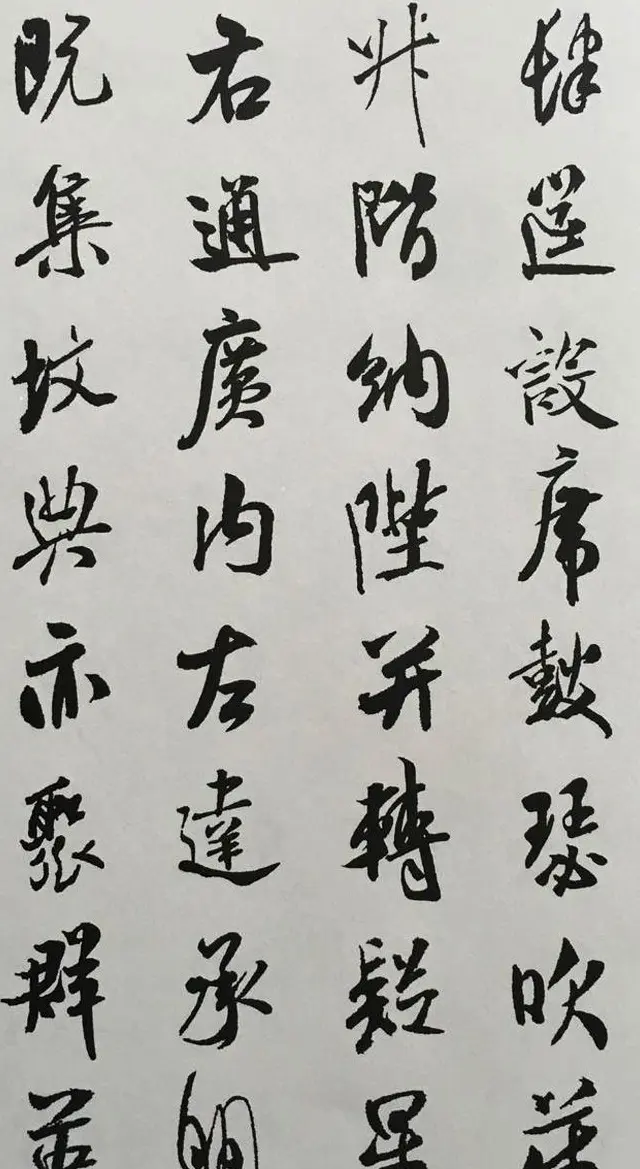 肆筵設席鼓瑟吹笙
升階納陛弁轉疑星
右通廣内左達承明
既集墳典亦聚群英